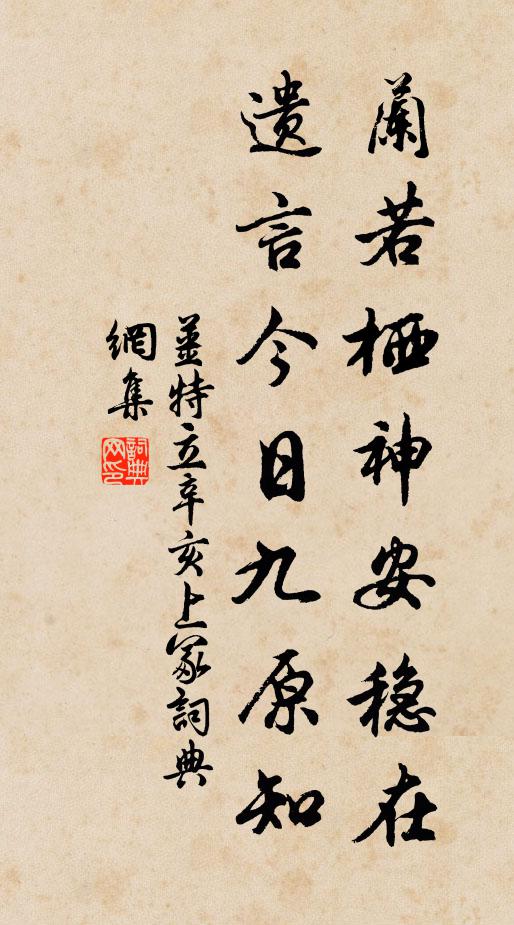 蘭若栖神安穩在
遺言今日九原知
姜特立辛亥上冢詞典
網集
詞典
网印